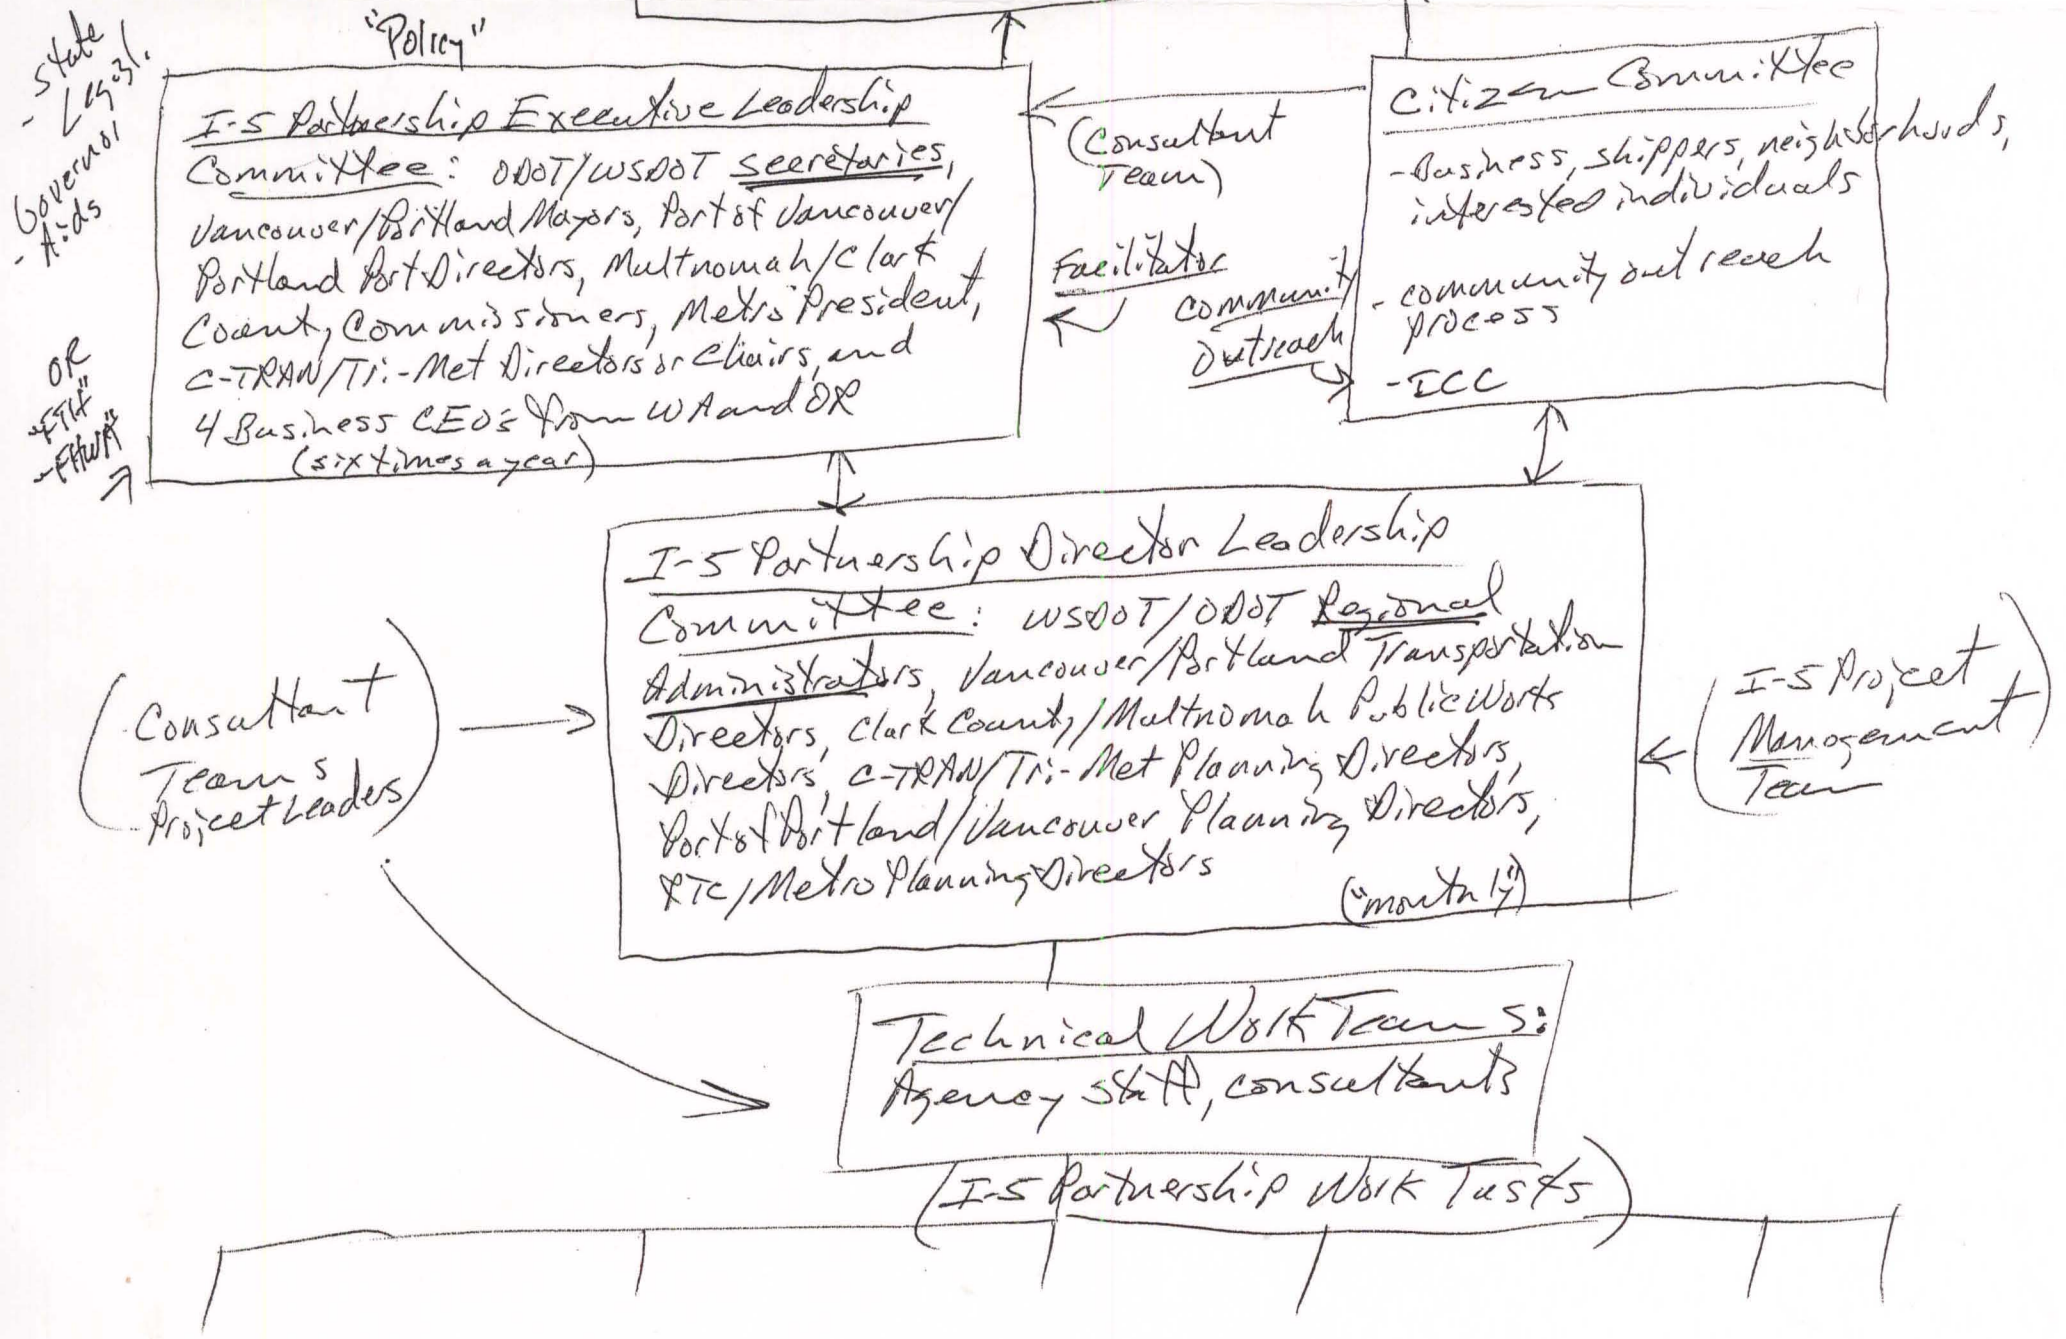 "Policy"
- State
Legisl.
- Governor
Aids
OR
- FTA"
- FHWA"
I-5 Partnership Executive Leadership
Committee: ODOT/WSDOT Secretaries,
Vancouver/Portland Mayors, Port of Vancouver/
Portland Port Directors, Multnomah/Clark
County Commissioners, Metro President,
C-TRAN/Tri-Met Directors or Chairs, and
4 Business CEOs from WA and OR
(six times a year)
(Consultant
Team)
Facilitator
Community
Outreach
Citizen Committee
- Business, shippers, neighborhoods,
interested individuals
- community outreach
process
- ICC
I-5 Partnership Director Leadership
Committee: WSDOT/ODOT Regional
Administrators, Vancouver/Portland Transportation
Directors, Clark County/Multnomah Public Works
Directors, C-TRAN/Tri-Met Planning Directors,
Port of Portland/Vancouver Planning Directors,
RTC/Metro Planning Directors
("monthly")
(Consultant
Teams
Project Leaders)
(I-5 Project
Management
Team)
Technical Work Teams:
Agency staff, consultants
(I-5 Partnership Work Tasks)